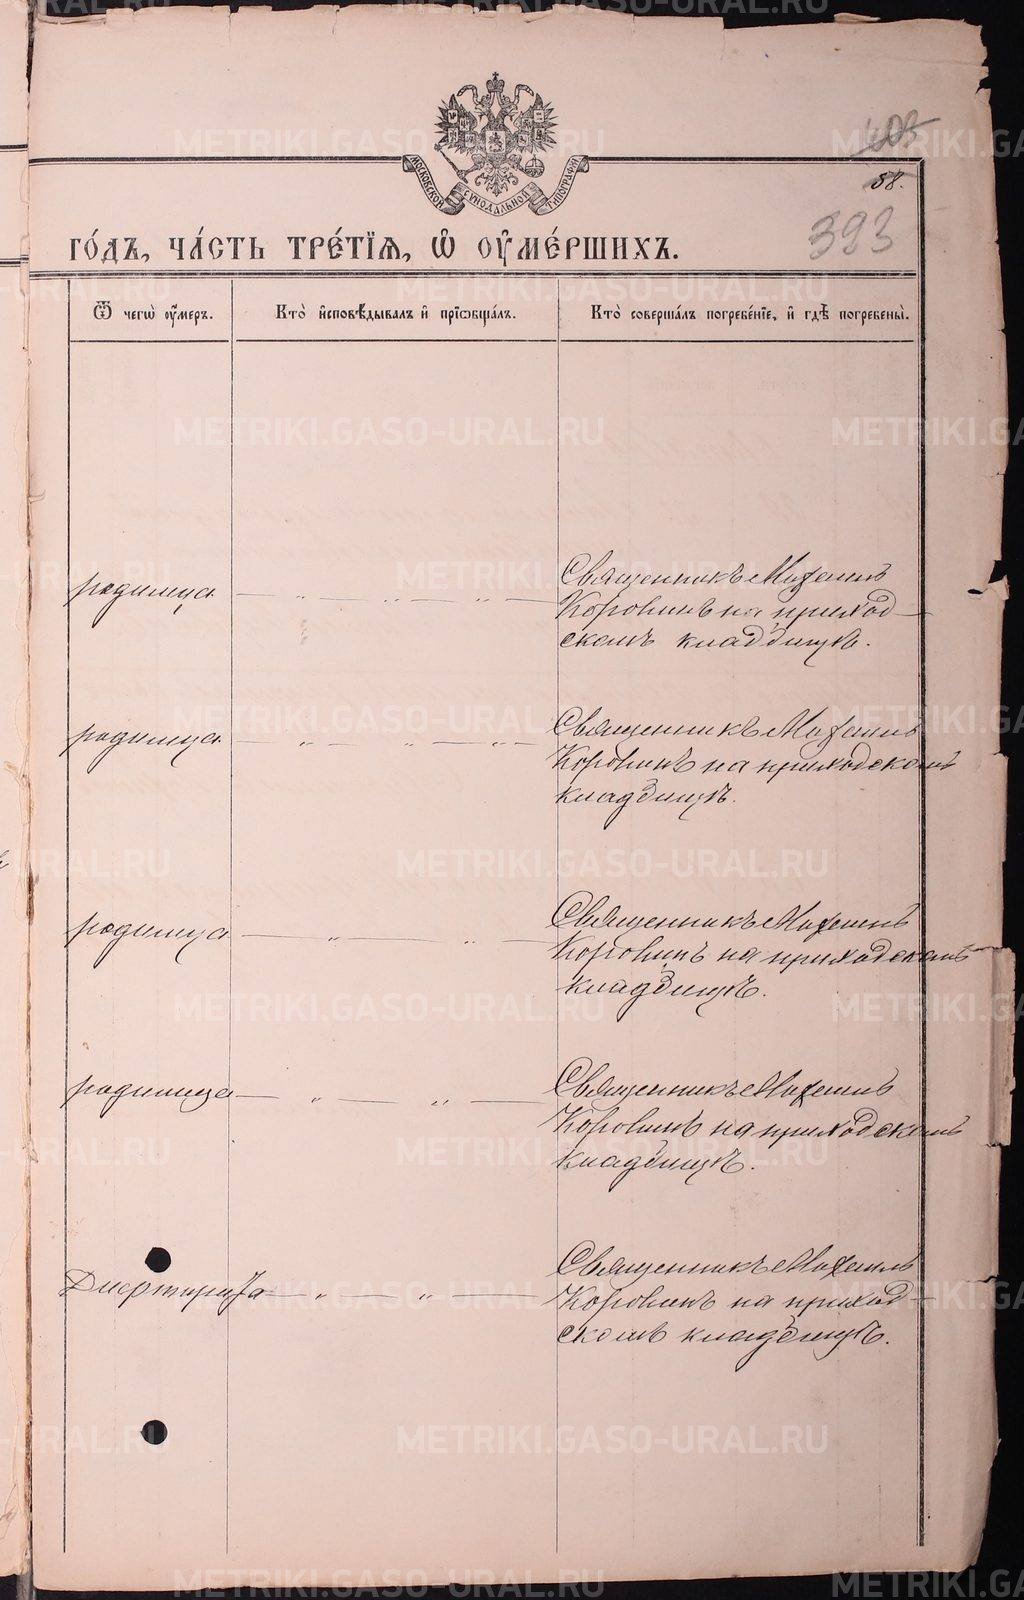 403
58.
МОСКОВСКОЙ СѴНОДАЛЬНОЙ ТИПОГРАФІИ
393
ГО́ДЪ, ЧА́СТЬ ТРЕ́ТІѦ, Ѽ ОУ҆МЕ́РШИХЪ.
Ѿ чегѡ̀ оу҆́меръ.
Кто̀ и҆сповѣ́дывалъ и҆ прїѡбща́лъ.
Кто̀ соверша́лъ погребе́нїе, и҆ гдѣ̀ погребены̀.
родимца — „ — „ — „ — Священникъ Михаилъ
Коровинъ на приход-
скомъ кладбищѣ.
родимца — „ — „ — „ — Священникъ Михаилъ
Коровинъ на приходскомъ
кладбищѣ.
родимца — „ — „ — Священникъ Михаилъ
Коровинъ на приходскомъ
кладбищѣ.
родимца — „ — „ — Священникъ Михаилъ
Коровинъ на приходскомъ
кладбищѣ.
Священникъ Михаилъ
— „ — „ — Коровинъ на приход-
скомъ кладбищѣ.
METRIKI.GASO-URAL.RU